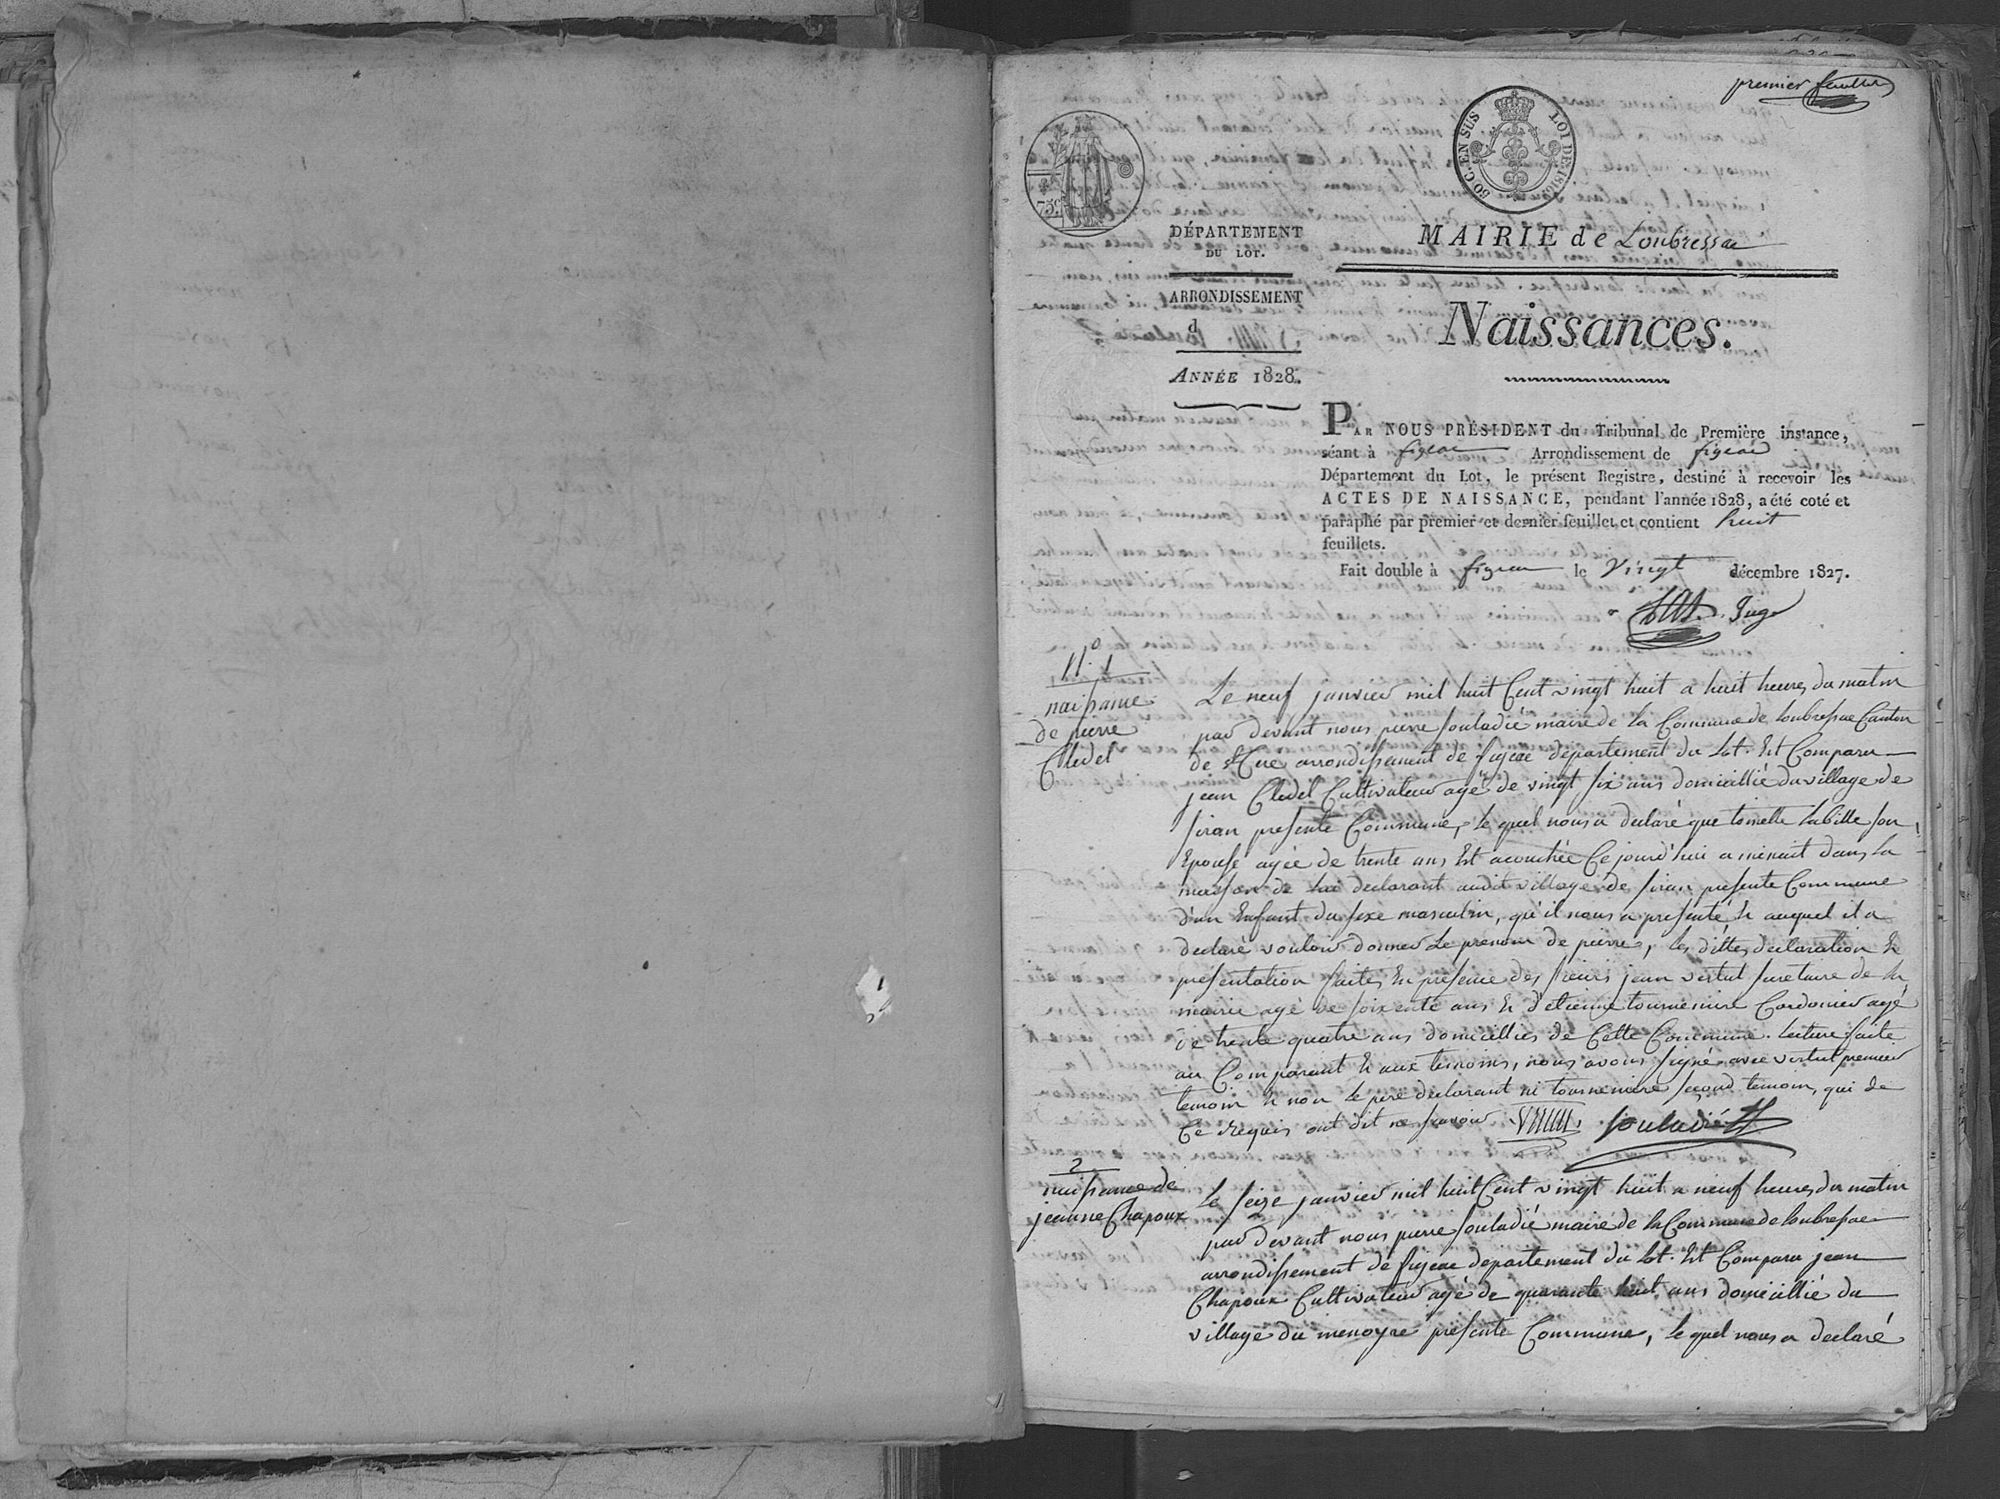 premier feuillet
50 C. EN SUS
LOI DE 1816
75 C
DÉPARTEMENT
DU LOT.
MAIRIE de Loubressac
ARRONDISSEMENT
d
Naissances.
ANNÉE 1828.
PAR NOUS PRÉSIDENT du Tribunal de Première instance,
séant à figeac Arrondissement de figeac
Département du Lot, le présent Registre, destiné à recevoir les
ACTES DE NAISSANCE, pendant l'année 1828, a été coté et
paraphé par premier et dernier feuillet et contient huit
feuillets.
Fait double à figeac le vingt décembre 1827.
Juge
N.º 1
naissance
de pierre
Cledel
Le neuf janvier mil huit Cent vingt huit a huit heures du matin
par devant nous pierre souladié maire de la Commune de loubressac Canton
de St Cere arrondissement de figeac departement du Lot. Est Comparu
jean Cledel Cultivateur agé de vingt six ans domicillié du village de
siran presente Commune, le quel nous a declaré que toinette labille son
Epouse agée de trente ans Est acouchée Ce jourd'hui a minuit dans la
maison de lui declarant audit village de siran presente Commune
d'un Enfant du sexe masculin, qu'il nous a presenté & auquel il a
declaré vouloir donner le prenom de pierre, les dittes declaration &
presentation faites En presence des sieurs jean vertut secretaire de la
mairie agé de soixente ans & d'etienne tournemire Cordonier agé
de trente quatre ans domicilliés de Cette Commune. Lecture faite
au Comparant & aux temoins, nous avons signé avec vertut premier
temoin & non le pere declarant ni tournemire second temoin, qui de
Ce Requis ont dit ne savoir souladié
2
naissance de
jeanne Chapoux
Le seize janvier mil huit Cent vingt huit a neuf heures du matin
par devant nous pierre souladié maire de la Commune de loubressac
arrondissement de figeac departement du Lot. Est Comparu jean
Chapoux Cultivateur agé de quarante huit ans domicillié du
village du menoyre presente Commune, le quel nous a declaré